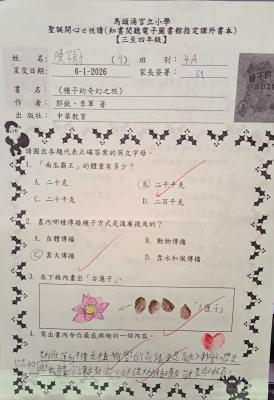 馬頭涌官立小學
聖誕開心e悅讀(知書閱聽電子圖書館指定課外書本)
【三至四年級】
姓名： 陳 (9) 班別： 4A
呈交日期： 6-1-2026 家長簽署：
書名： 《種子的奇幻之旅》
作者： 郭銳、李軍 著
出版社： 中華教育
請圈出各題代表正確答案的英文字母。
1. 「南瓜霸王」的體重有多少？
A. 二十克 B. 二千千克
C. 二十千克 D. 二百千克
2. 書內哪種傳播種子方式是沒有提及的？
A. 自體傳播 B. 動物傳播
C. 靠火傳播 D. 靠水和風傳播
3. 在下格內畫出「古蓮子」。
古蓮子
4. 寫出書內令你最感興趣的一個內容。